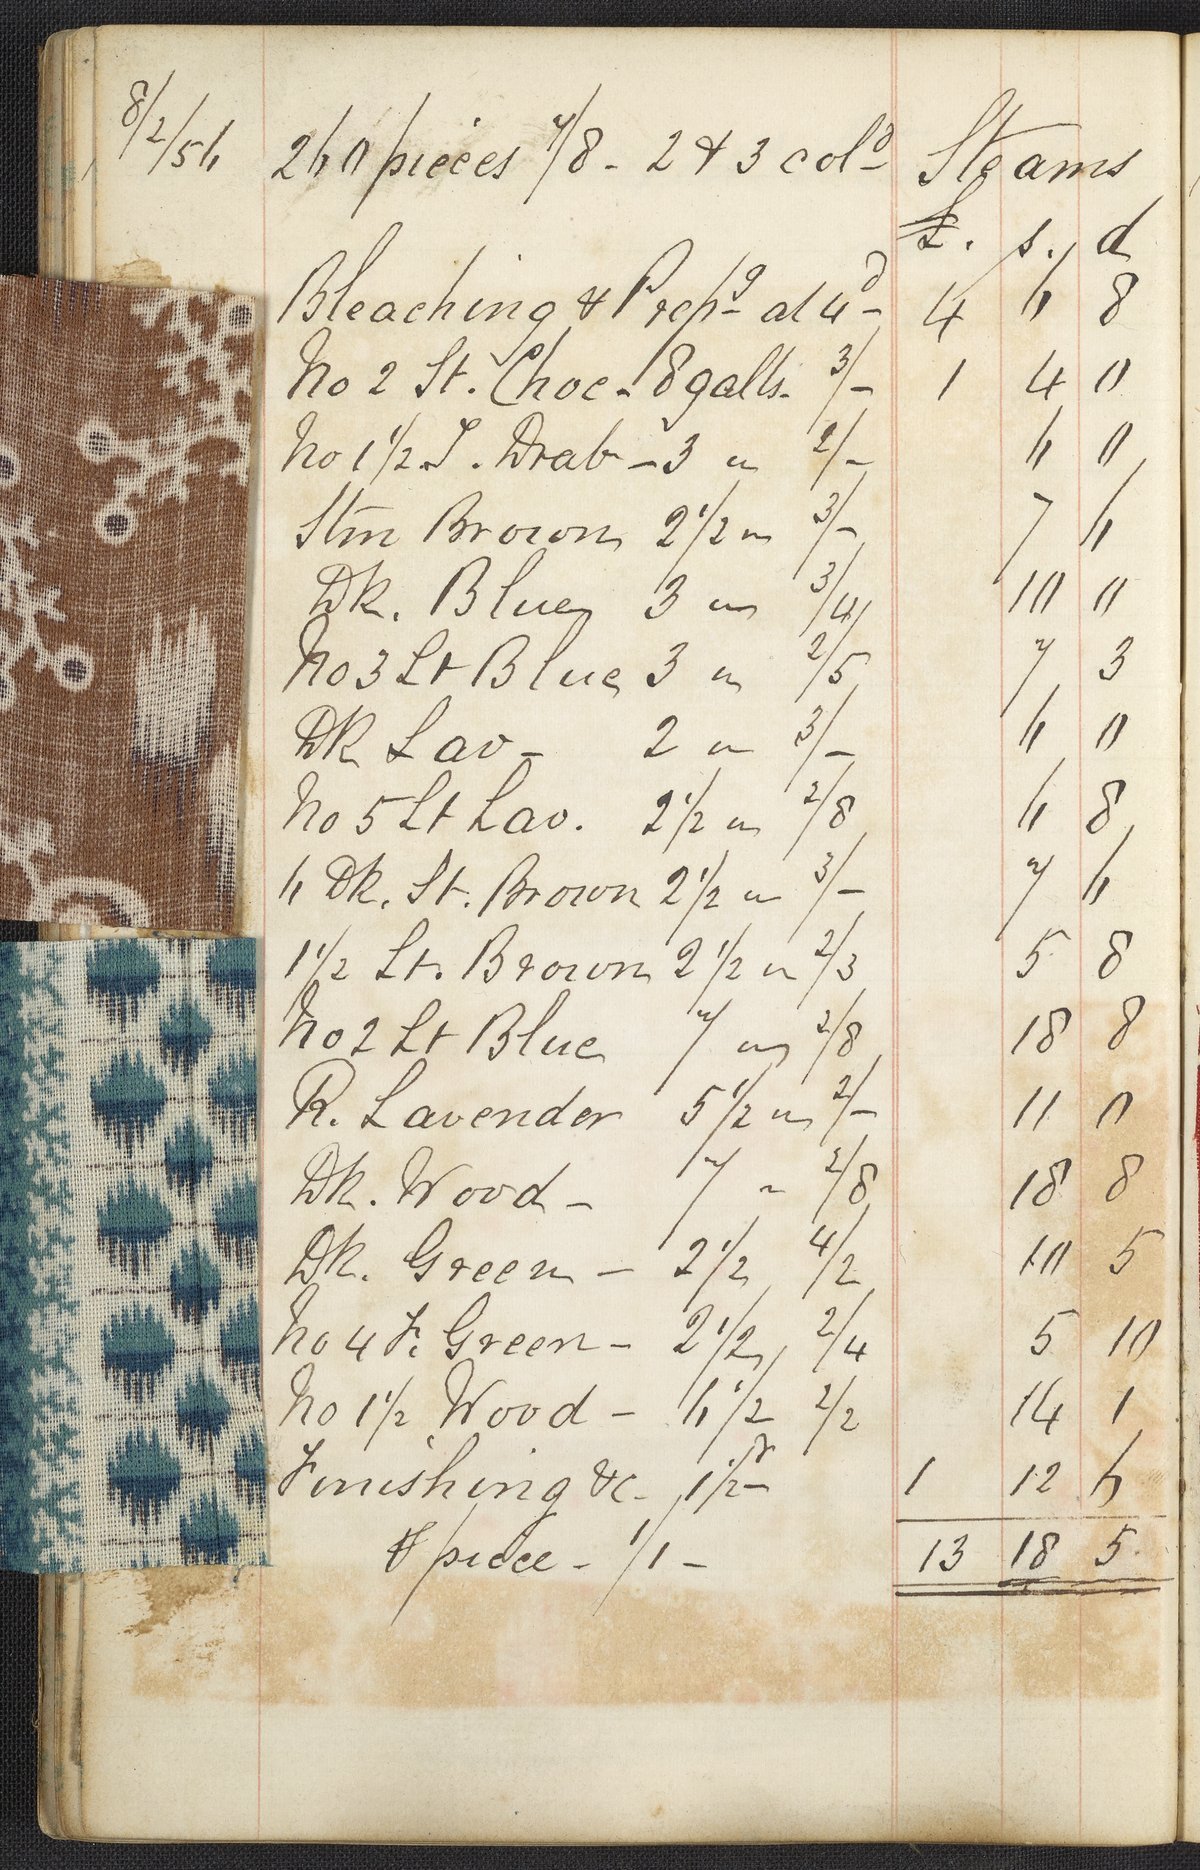 8/2/56 260 pieces 7/8 - 2 & 3 cold Steams
£. s. d
Bleaching & Prepg at 4d - 4 6 8
No 2 St. Choc - 8 galls. 3/- 1 4 0
No 1 1/2 S. Drab - 3 " 2/- 6 0
Stm Brown 2 1/2 " 3/- 7 6
Dk. Blue 3 " 3/4 10 0
No 3 Lt Blue 3 " 2/5 7 3
Dk Lav - 2 " 3/- 6 0
No 5 Lt Lav. 2 1/2 " 2/8 6 8
6 Dk. St. Brown 2 1/2 " 3/- 7 6
1 1/2 Lt. Brown 2 1/2 " 2/3 5 8
No 2 Lt Blue 7 " 2/8 18 8
R. Lavender 5 1/2 " 2/- 11 0
Dk. Wood - 7 " 2/8 18 8
Dk. Green - 2 1/2 4/2 10 5
No 4 F. Green - 2 1/2 2/4 5 10
No 1 1/2 Wood - 6 1/2 2/2 14 1
Finishing &c - 1 1/2d 1 12 6
⅌ piece - 1/1 - 13 18 5